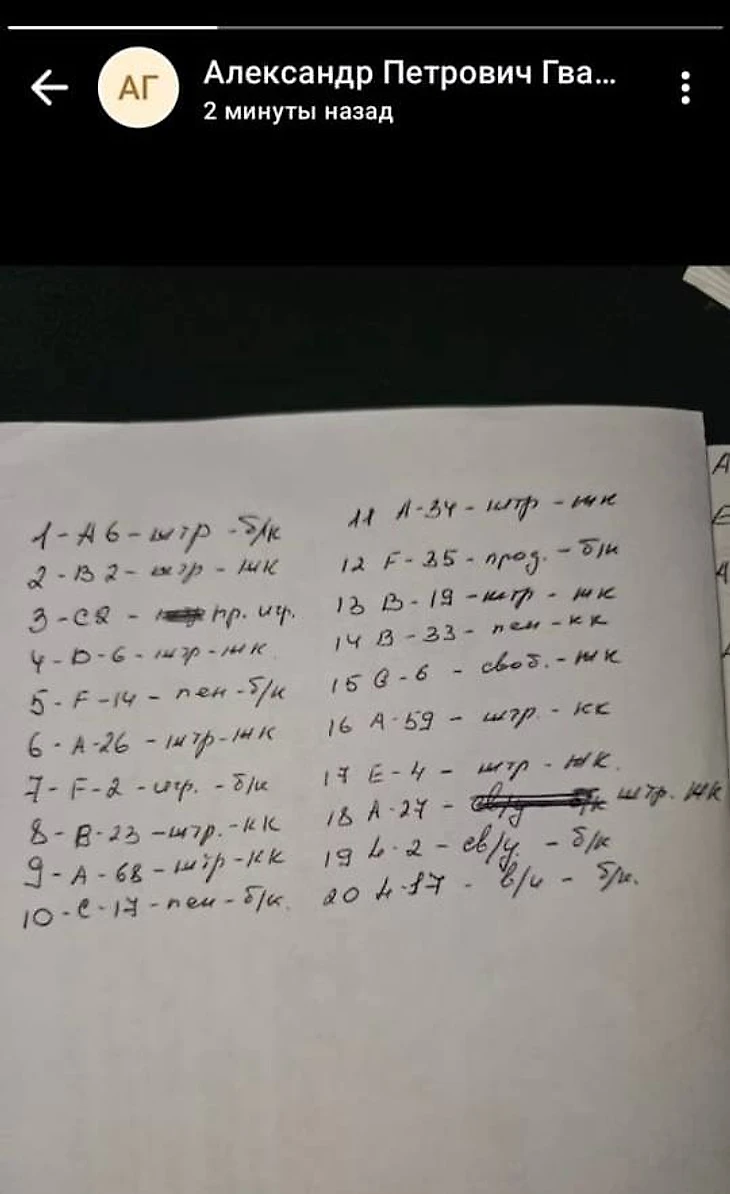 Александр Петрович Гва...
АГ
2 минуты назад
1 - A6 - штр - б/к
2 - B2 - штр - жк
3 - C2 - пр. игр.
4 - D-6 - штр - жк
5 - F-14 - пен - б/к
6 - A-26 - штр - жк
7 - F-2 - игр. - б/к
8 - B-23 - штр. - кк
9 - A-68 - штр - кк
10 - C-17 - пен - б/к.
11 A-34 - штр - жк
12 F-35 - прод. - б/к
13 B-19 - штр - жк
14 B-33 - пен - кк
15 C-6 - своб. - жк
16 A-59 - штр. - кк
17 E-4 - штр - жк.
18 A-27 - штр. жк
19 L-2 - св/у. - б/к
20 L-17 - в/и - б/к.